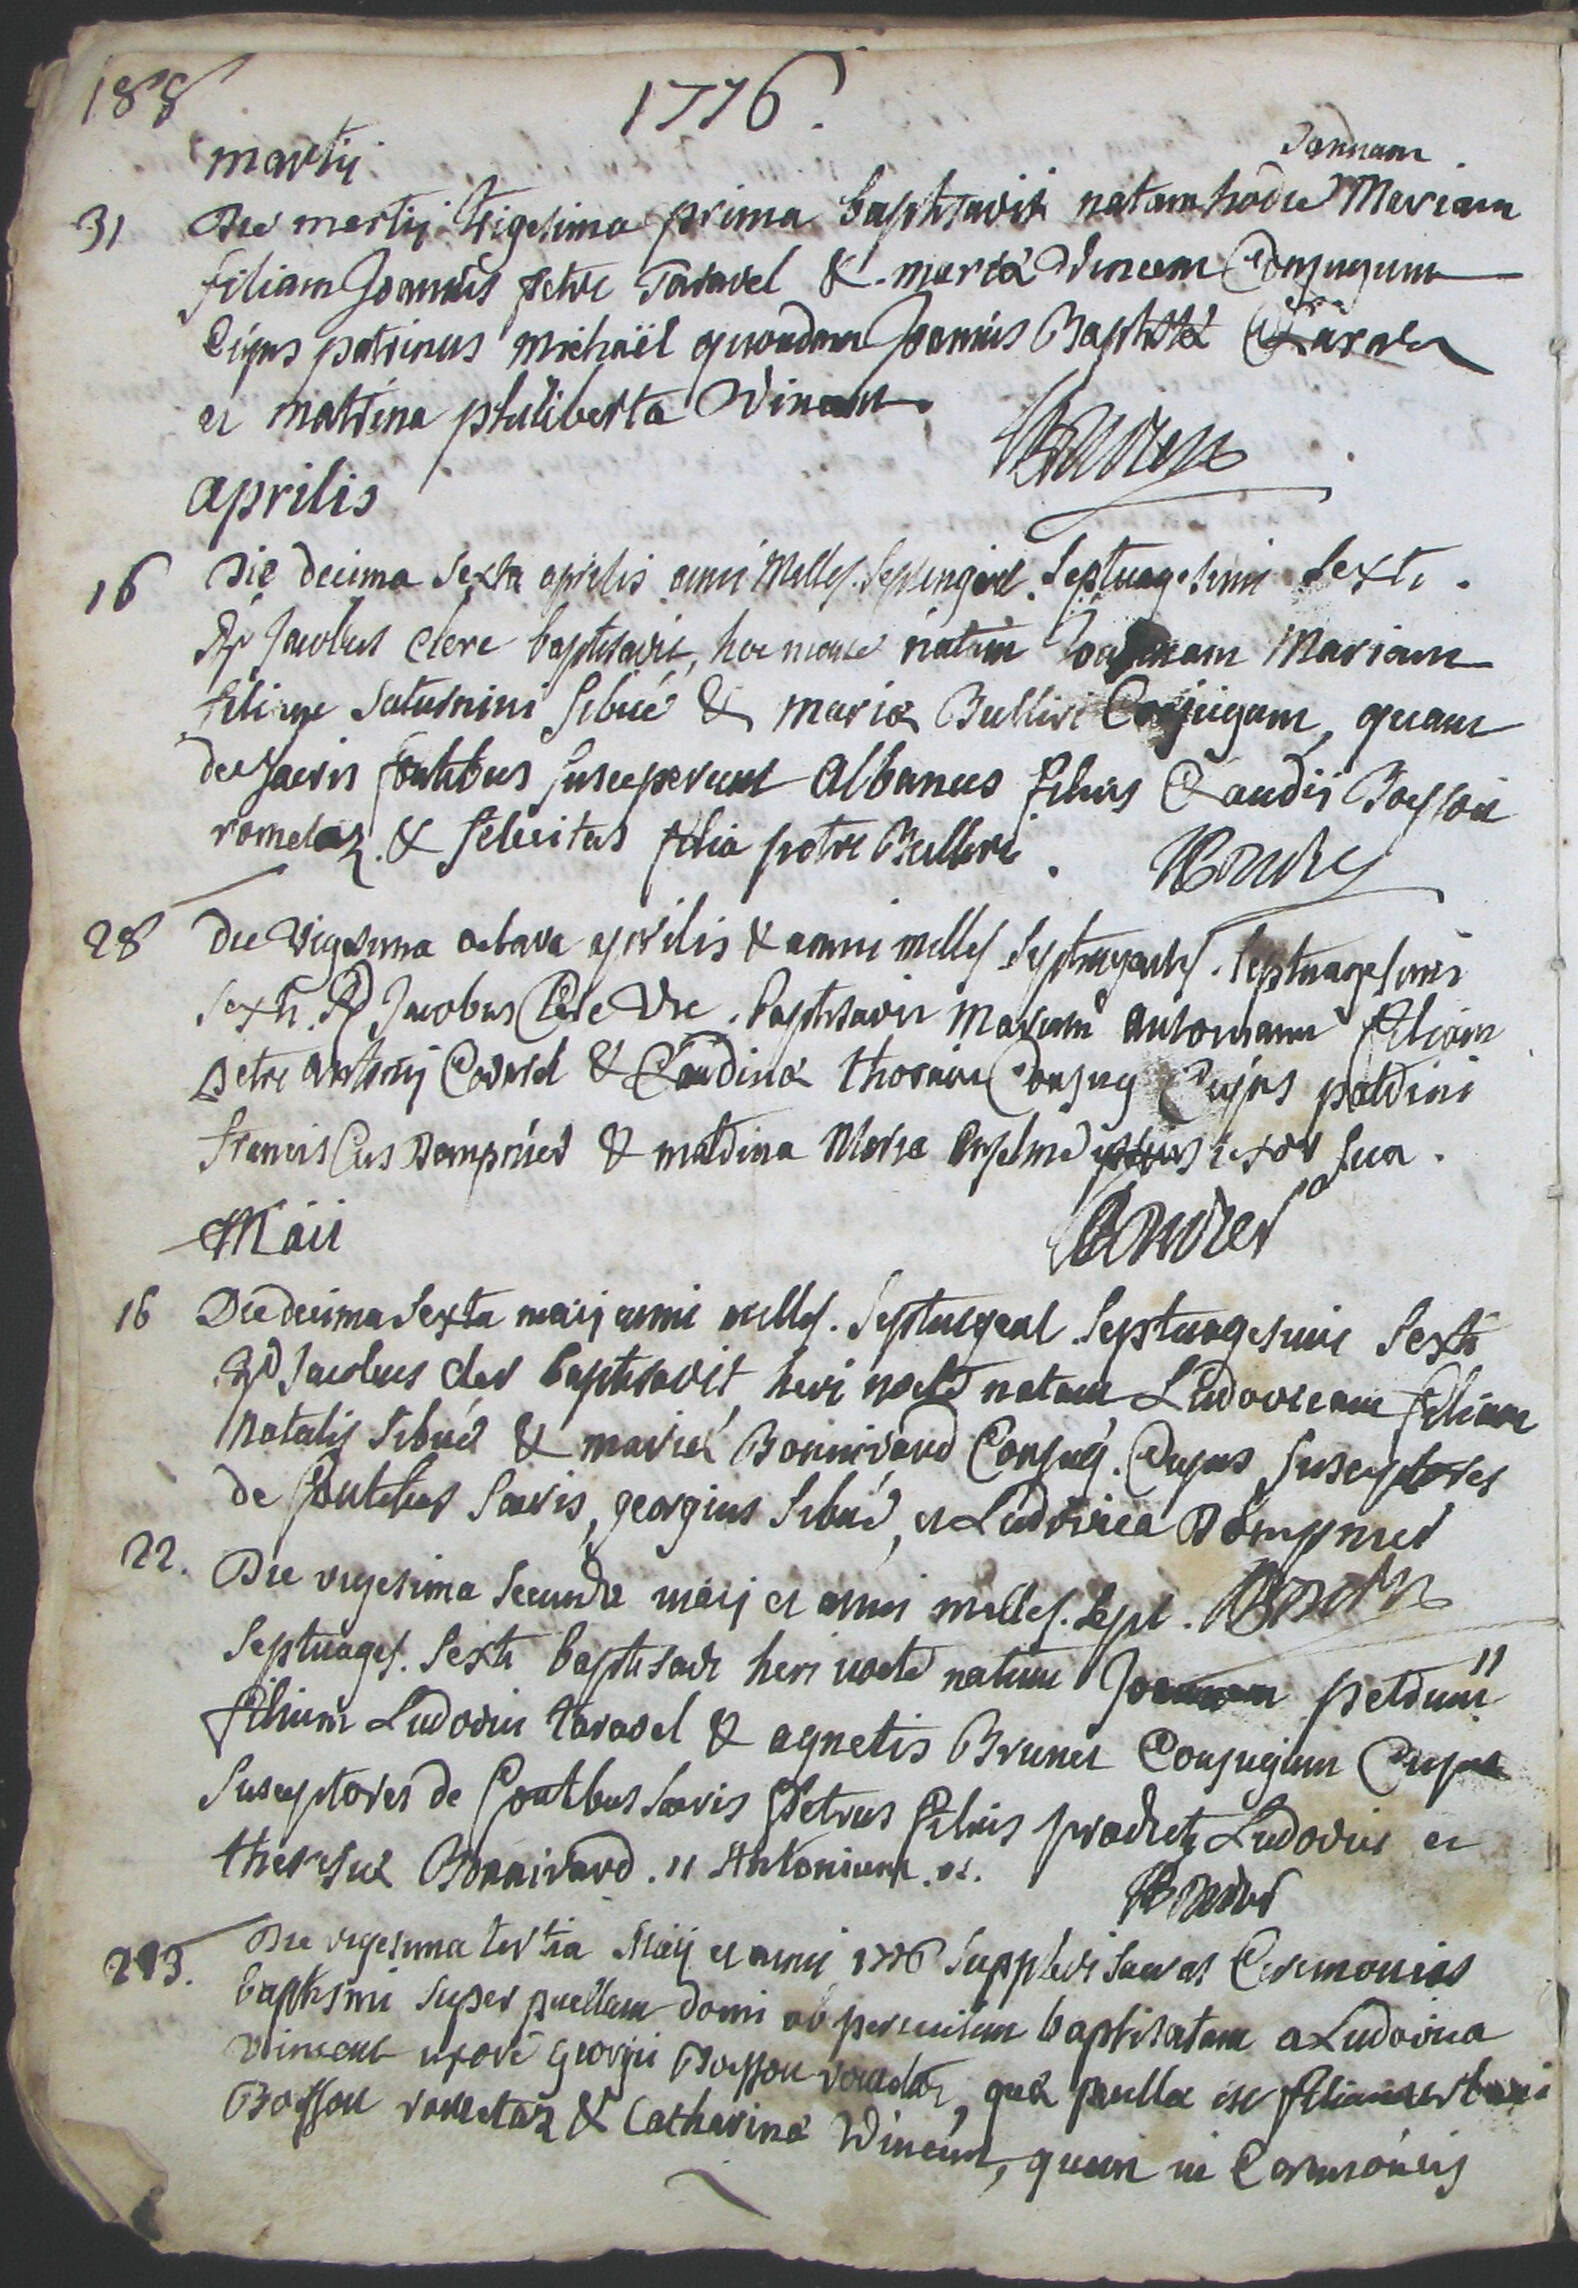 188
1776.
martij
Joannam
31 Die martij trigesima prima baptisavit natam hodie Mariam
filiam Joannis petri Taravel & mariæ Vincent Conjugum
Cujus patrinus michaël quondam Joannis Baptistæ Taravel
et matrina philiberta Vincent.
aprilis
16 Die decima Sexta aprilis anni Milles. Septingent. Septuagesimi Sexti.
Rd Jacobus Clere baptisavit, hoc mane natam Joannam Mariam
filiam Saturnini Sibué & mariæ Bullive Conjugum, quam
de sacris fontibus susceperunt Albanus filius Claudii Bosson
rometaz. & felicitas filia petri Bullive.
28 die vigesima octava aprilis & anni milles. Septingentes. Septuagesimi
Sexti. Rd Jacobus Clere Vic. baptisavit Mariam antoniam filiam
petri antonij Taravel & Claudinæ Conjug Cujus patrini
franciscus Dompnier & matrina Maria Anselme uxor sua.
Maii
16 Die decima Sexta maij anni milles. Septingent. Septuagesimi Sexti
Rd Jacobus cler baptisavit, heri nocte natam Ludovicam filiam
Natalis Sibué & mariæ Bonnivard Conjug. Cujus susceptores
de fontibus Sacris, georgius Sibué, et Ludovica Dompnier
22. Die vigesima Secunda maij et anni milles. Sept.
Septuages. Sexti baptisavi heri nocte natum petrum
filium Ludovici taravel & agnetis Brunet Conjugum Cujus
Susceptores de fontibus Sacris Petrus filius prædicti Ludovici et
theresiæ Bonnivard. " Antonium. et.
23. Die vigesima tertia Maij et anni 1776 Supplevi sacras Ceremonias
baptismi super puellam domi ob periculum baptisatam a Ludovica
Vincent uxore georgii Bosson rometaz, quæ puella est filia
Bosson rometaz & Catharinæ Vincent, quam in Ceremoniis